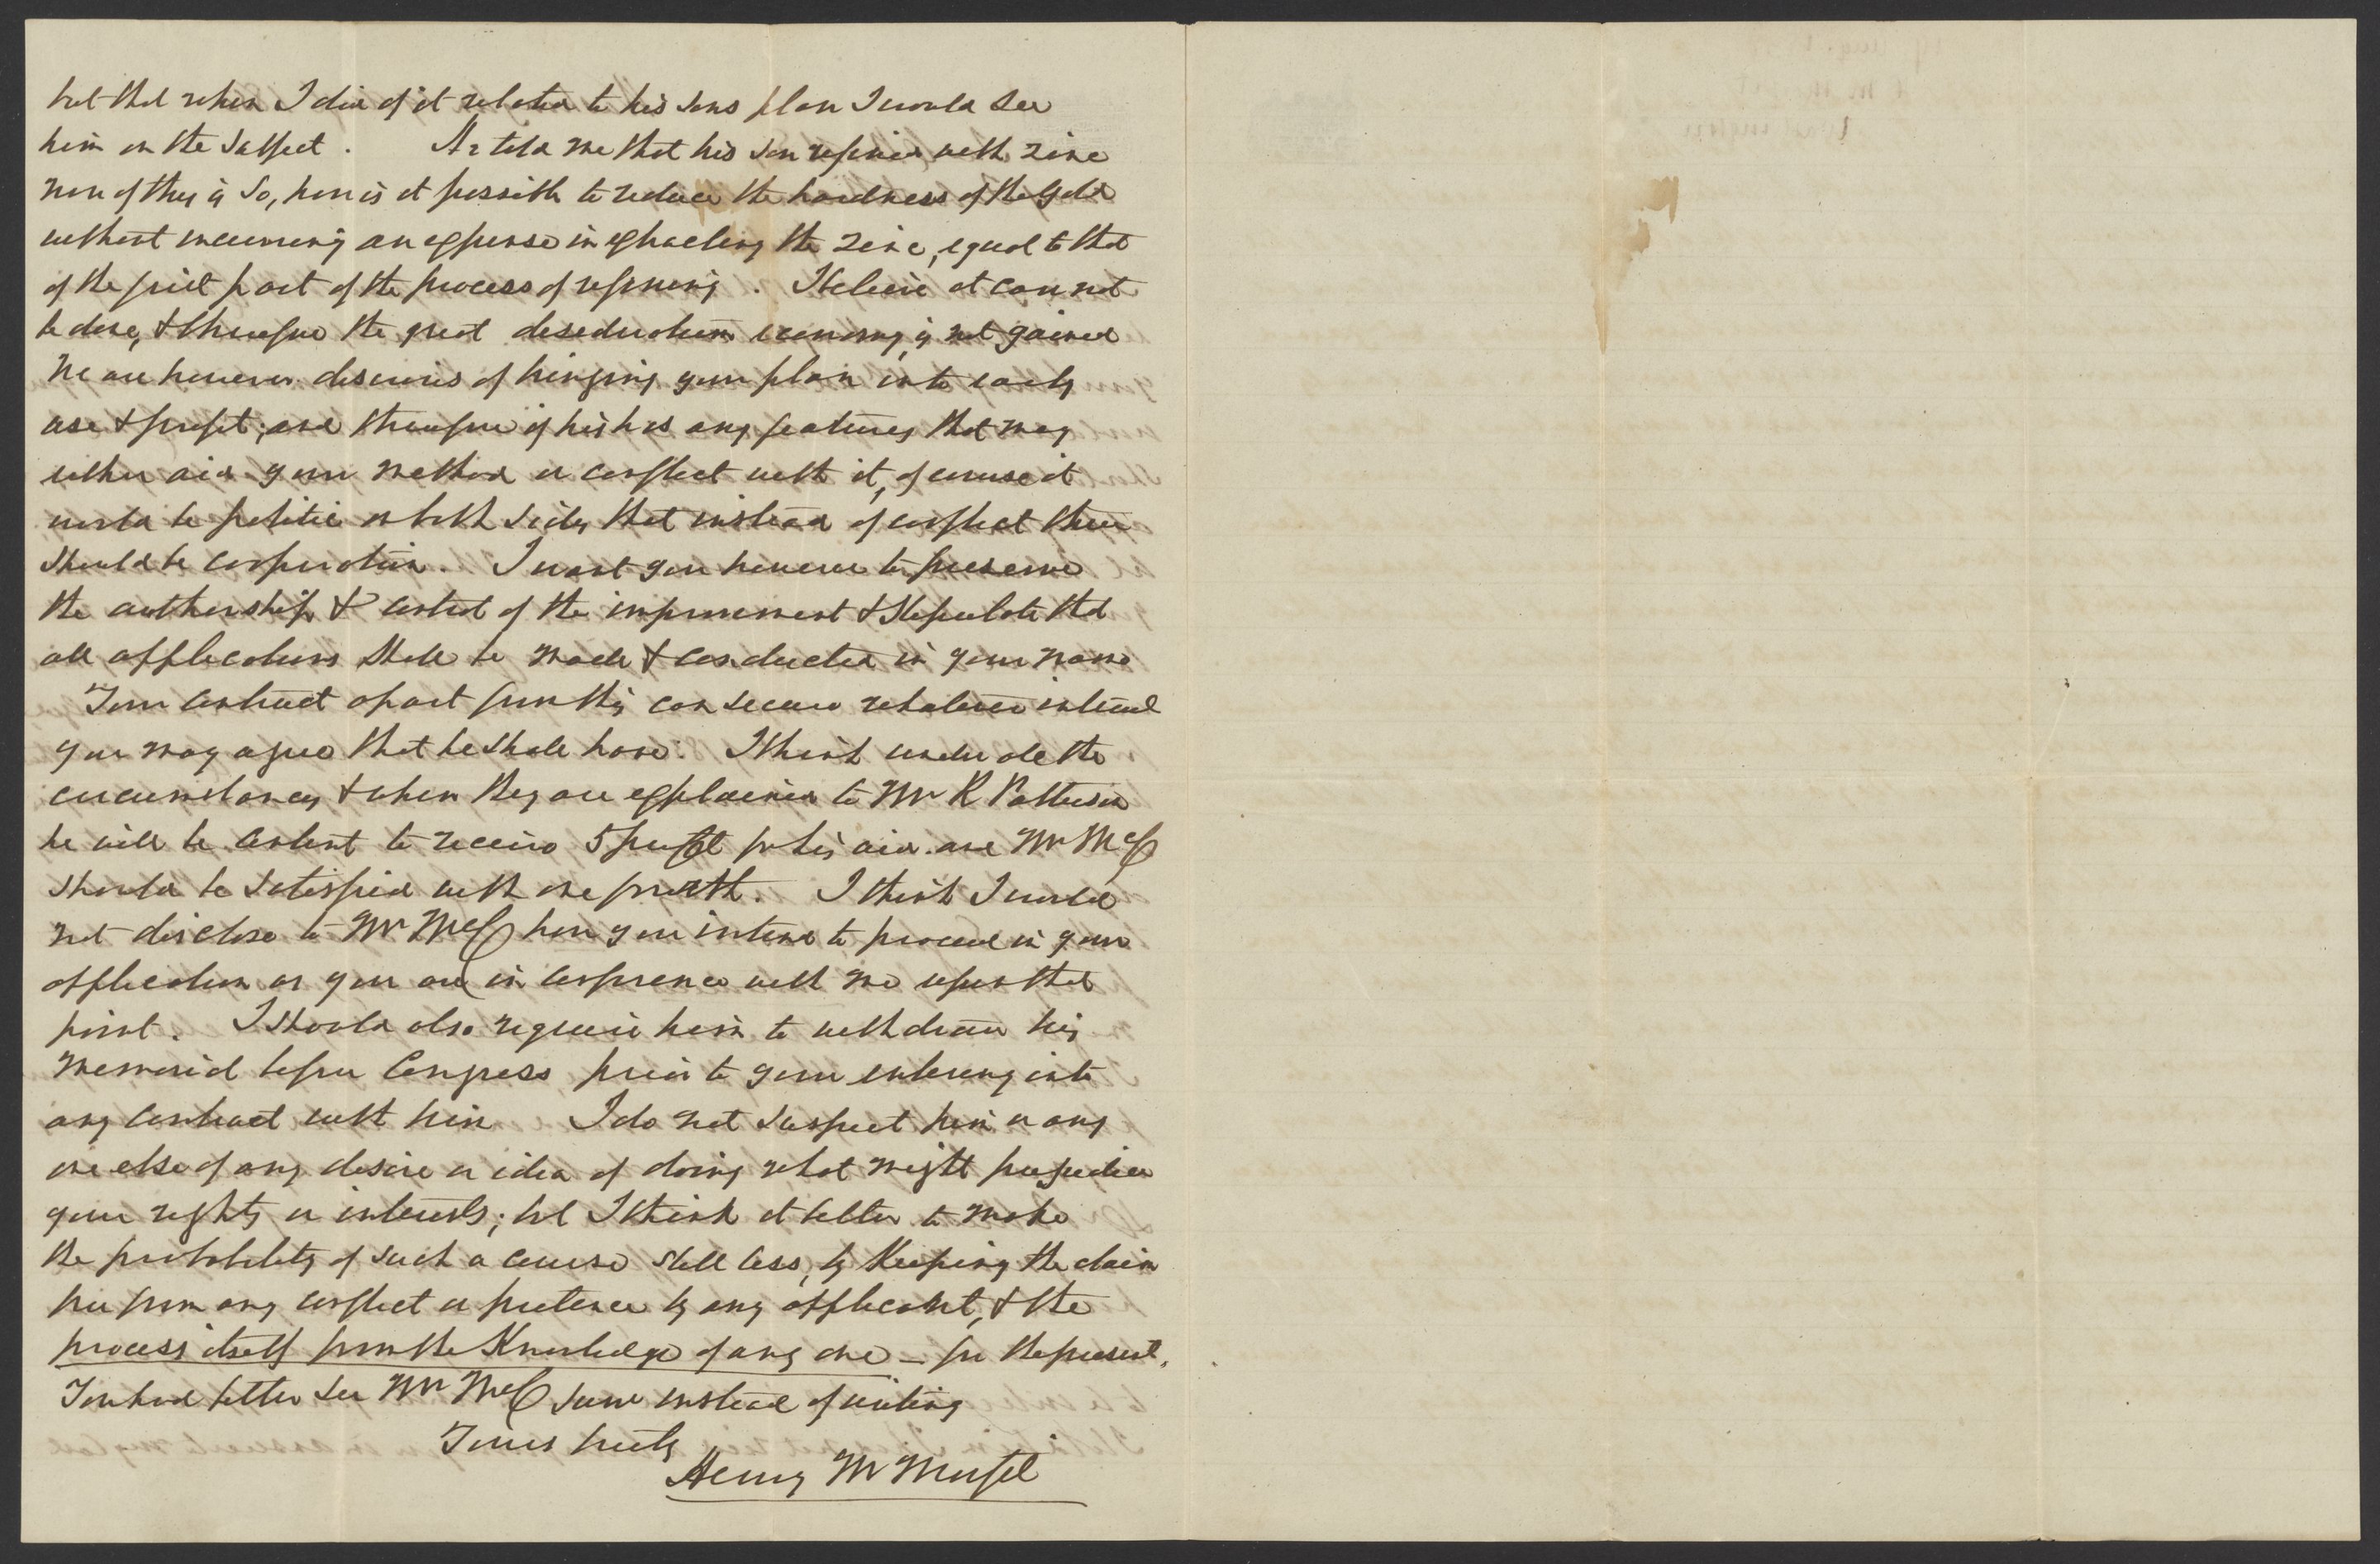 but that when I did if it related to his sons plan I would see
him on the subject. He told me that his son refined with zinc
now if this is so, how is it possible to reduce the hardness of the gold
without incurring an expense in extracting the zinc, equal to that
of the first part of the process of refining. I believe it can not
be done, & therefore the great desideratum economy, is not gained
We are however desirous of bringing your plan into early
use & profit; and therefore if his has any features that may
either aid your method or conflict with it, of course it
would be politic on both sides that instead of conflict there
should be cooperation. I want you however to preserve
the authorship & control of the improvement & stipulate that
all applications shall be made & conducted in your name
Your contract apart from this can secure whatever interest
you may agree that he shall have. I think under all the
circumstances & when they are explained to Mr R Patterson
he will be content to receive 5 per ct for his aid. and Mr McC
should be satisfied with one fourth. I think I would
not disclose to Mr McC how you intend to proceed in your
application as you are in conference with me upon that
point. I should also require him to withdraw his
memorial before Congress prior to your entering into
any contract with him I do not suspect him or any
one else of any desire or idea of doing what might prejudice
your rights or interests; but I think it better to make
the probability of such a course still less, by keeping the claim
free from any conflict or pretence by any applicant, & the
process itself from the knowledge of any one – for the present.
You had better see Mr McC soon instead of writing
Yours truly
Henry M